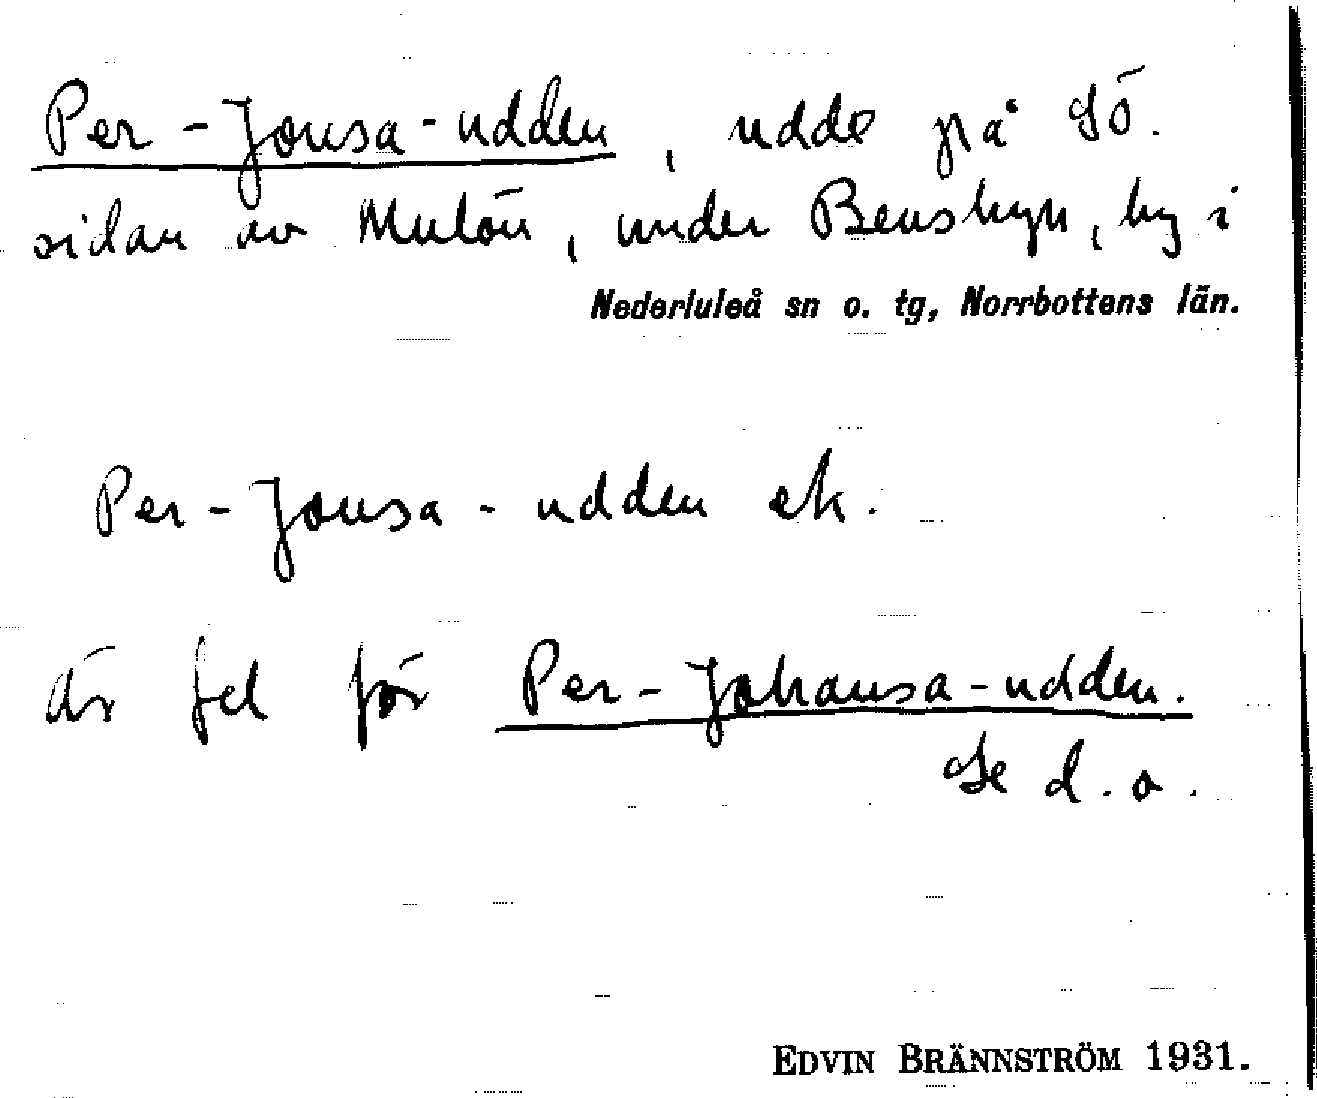 Per-Jonsa-udden, udde på SÖ.
sidan av Mulön, under Bensbyn, by i
Nederluleå sn o. tg, Norrbottens län.
Per-Jonsa-udden ek.
är fel för Per-Johansa-udden.
Se d.o.
EDVIN BRÄNNSTRÖM 1931.